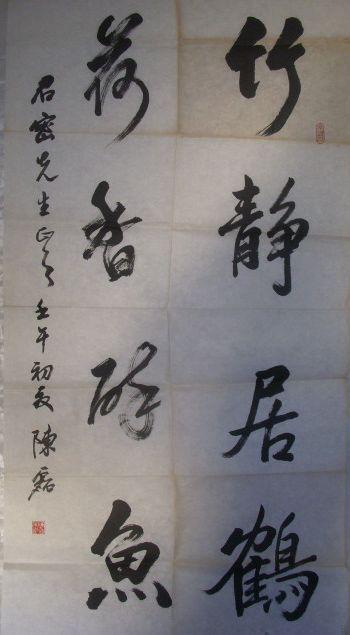 竹静居鹤
荷香醉魚
石窗先生正之 壬午初夏 陳磊